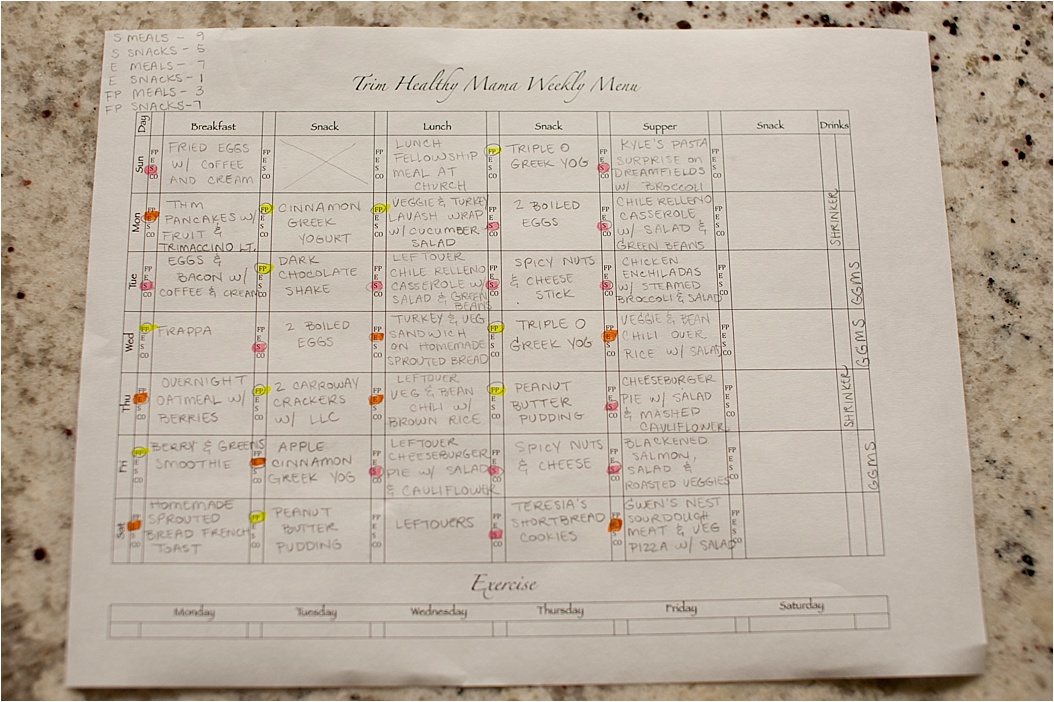 S MEALS - 9
S SNACKS - 5
E MEALS - 7
E SNACKS - 1
FP MEALS - 3
FP SNACKS - 7
Trim Healthy Mama Weekly Menu
Day Breakfast Snack Lunch Snack Supper Snack Drinks
Sun
FP
E
S
CO
FRIED EGGS
W/ COFFEE
AND CREAM
FP
E
S
CO
FP
E
S
CO
LUNCH
FELLOWSHIP
MEAL AT
CHURCH
FP
E
S
CO
TRIPLE O
GREEK YOG
FP
E
S
CO
KYLE'S PASTA
SURPRISE ON
DREAMFIELDS
W/ BROCCOLI
FP
E
S
CO
Mon
FP
E
S
CO
THM
PANCAKES W/
FRUIT &
TRIMACCINO LT.
FP
E
S
CO
CINNAMON
GREEK
YOGURT
FP
E
S
CO
VEGGIE & TURKEY
LAVASH WRAP
W/ CUCUMBER
SALAD
FP
E
S
CO
2 BOILED
EGGS
FP
E
S
CO
CHILE RELLENO
CASSEROLE
W/ SALAD &
GREEN BEANS
FP
E
S
CO
SHRINKER
Tue
FP
E
S
CO
EGGS &
BACON W/
COFFEE & CREAM
FP
E
S
CO
DARK
CHOCOLATE
SHAKE
FP
E
S
CO
LEFTOVER
CHILE RELLENO
CASSEROLE W/
SALAD & GREEN
BEANS
FP
E
S
CO
SPICY NUTS
& CHEESE
STICK
FP
E
S
CO
CHICKEN
ENCHILADAS
W/ STEAMED
BROCCOLI & SALAD
FP
E
S
CO
GGMS
Wed
FP
E
S
CO
FRAPPA
FP
E
S
CO
2 BOILED
EGGS
FP
E
S
CO
TURKEY & VEG
SANDWICH
ON HOMEMADE
SPROUTED BREAD
FP
E
S
CO
TRIPLE O
GREEK YOG
FP
E
S
CO
VEGGIE & BEAN
CHILI OVER
RICE W/ SALAD
FP
E
S
CO
GGMS
Thu
FP
E
S
CO
OVERNIGHT
OATMEAL W/
BERRIES
FP
E
S
CO
2 CARROWAY
CRACKERS
W/ LLC
FP
E
S
CO
LEFTOVER
VEG & BEAN
CHILI W/
BROWN RICE
FP
E
S
CO
PEANUT
BUTTER
PUDDING
FP
E
S
CO
CHEESEBURGER
PIE W/ SALAD
& MASHED
CAULIFLOWER
FP
E
S
CO
SHRINKER
Fri
FP
E
S
CO
BERRY & GREENS
SMOOTHIE
FP
E
S
CO
APPLE
CINNAMON
GREEK YOG
FP
E
S
CO
LEFTOVER
CHEESEBURGER
PIE W/ SALAD
& CAULIFLOWER
FP
E
S
CO
SPICY NUTS
& CHEESE
FP
E
S
CO
BLACKENED
SALMON,
SALAD &
ROASTED VEGGIES
FP
E
S
CO
GGMS
Sat
FP
E
S
CO
HOMEMADE
SPROUTED
BREAD FRENCH
TOAST
FP
E
S
CO
PEANUT
BUTTER
PUDDING
FP
E
S
CO
LEFTOVERS
FP
E
S
CO
TERESIA'S
SHORTBREAD
COOKIES
FP
E
S
CO
GWEN'S NEST
SOURDOUGH
MEAT & VEG
PIZZA W/ SALAD
FP
E
S
CO
Exercise
Monday Tuesday Wednesday Thursday Friday Saturday